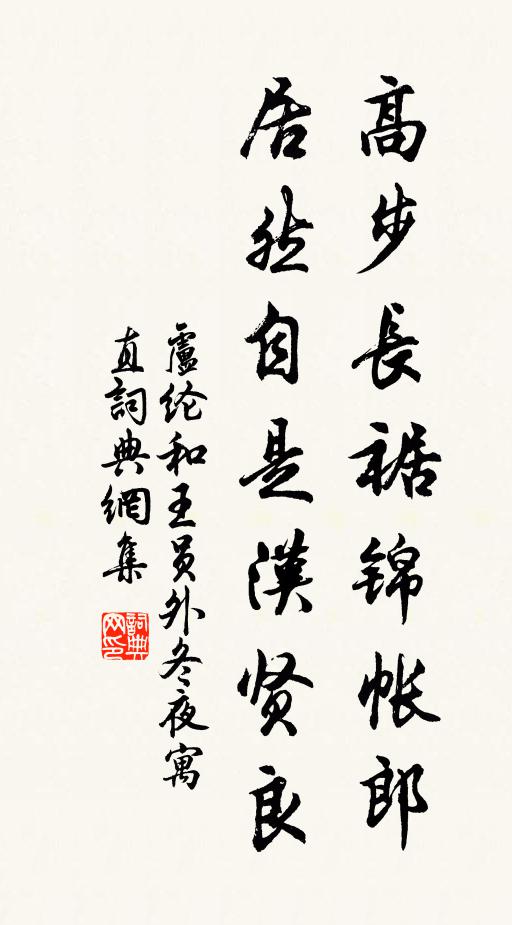 高步長裾錦帐郎
居然自是漢贤良
盧纶和王员外冬夜寓
直詞典網集
詞典网印